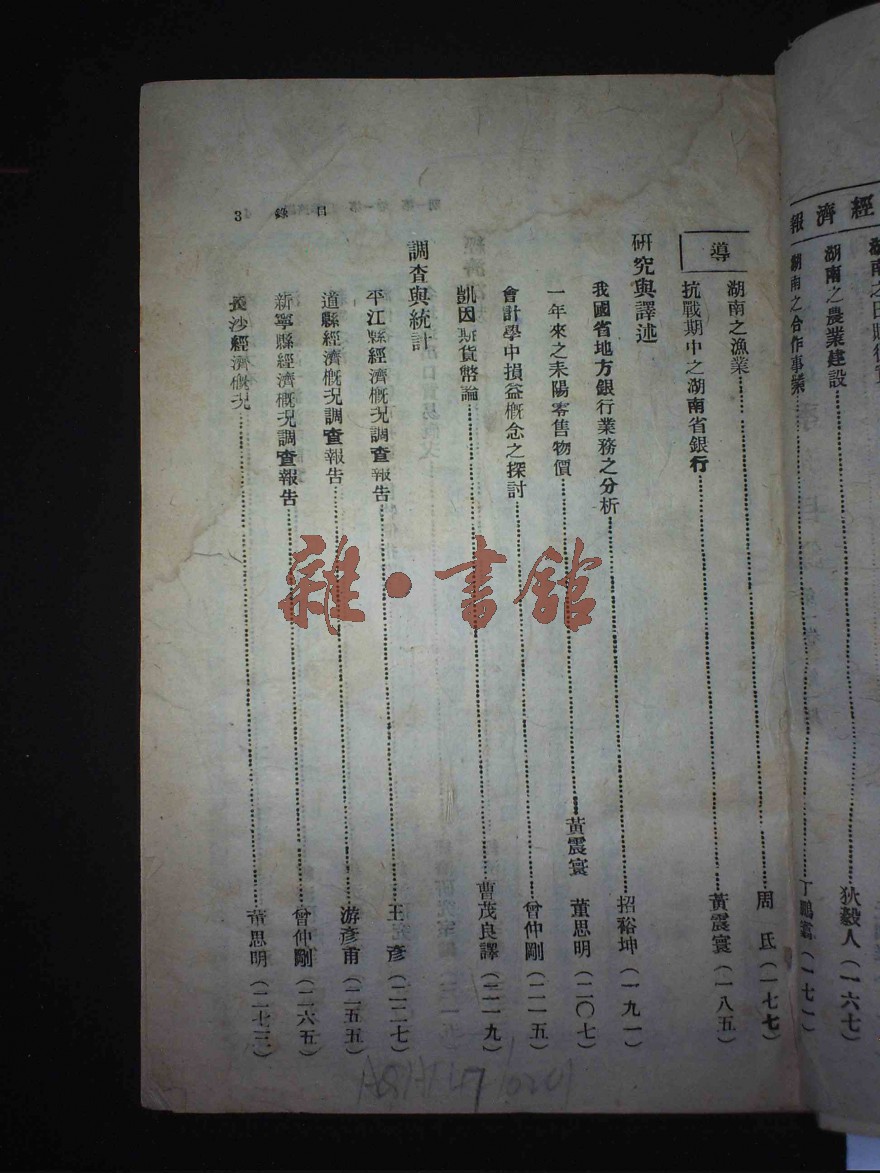 經濟
報
湖南之農業建設 狄毅人（一六七）
湖南之合作事業 丁鵬翥（一七一）
目錄 3
導
湖南之漁業 周氐（一七七）
抗戰期中之湖南省銀行 黃震寰（一八五）
研究與譯述
我國省地方銀行業務之分析 招裕坤（一九一）
一年來之耒陽零售物價 黃震寰 董思明（二〇七）
會計學中損益概念之探討 曾仲剛（二一五）
凱因斯貨幣論 曹茂良譯（二一九）
調查與統計
平江縣經濟概況調查報告 王彥（二二七）
道縣經濟概況調查報告 游彥甫（二五五）
新寧縣經濟概況調查報告 曾仲剛（二六五）
長沙經濟概況 董思明（二七三）
雜·書館